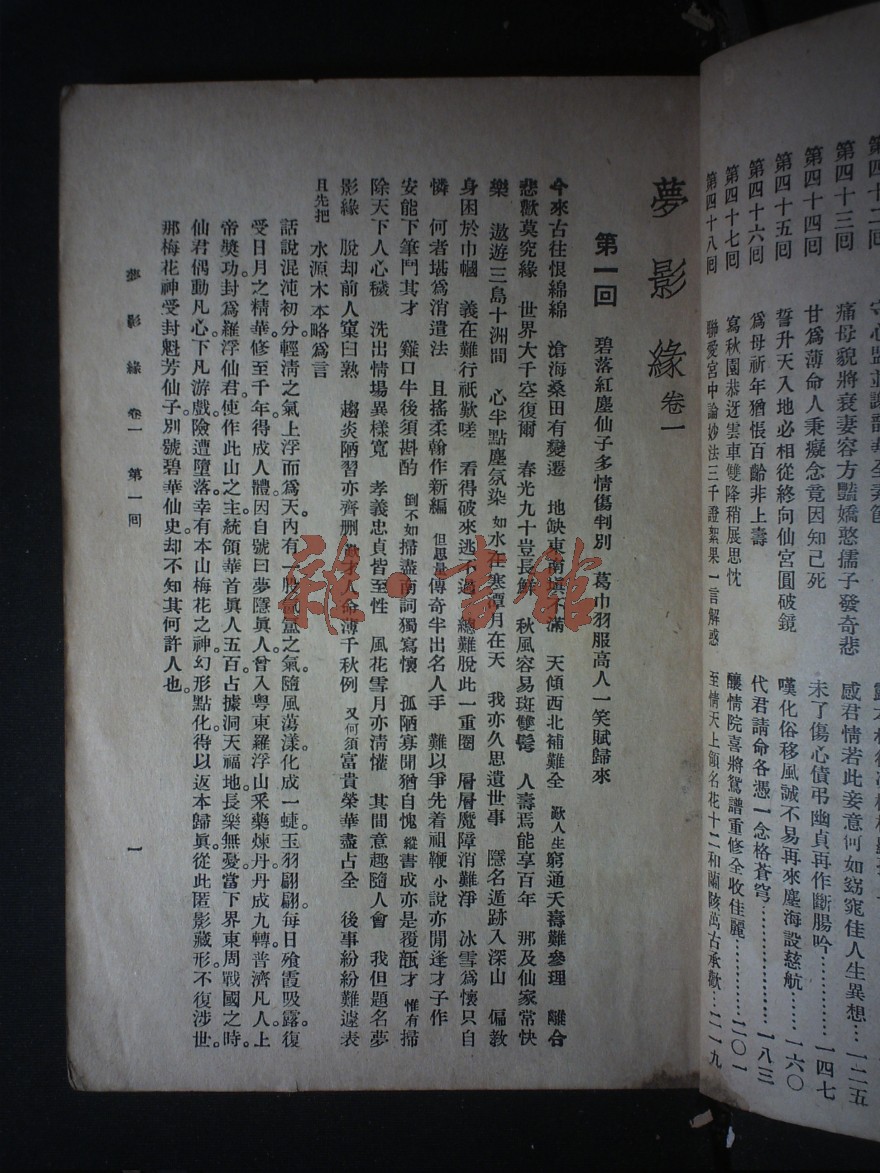 第四十二回
第四十三回　痛母貌將衰妻容方豔嬌憨孺子發奇悲　感君情若此妾意何如窈窕佳人生異想…一二五
第四十四回　甘爲薄命人秉癡念竟因知己死　未了傷心債弔幽貞再作斷腸吟…………一四七
第四十五回　誓升天入地必相從終向仙宮圓破鏡　嘆化俗移風誠不易再來塵海設慈航……一六〇
第四十六回　爲母祈年猶悵百齡非上壽　代君請命各憑一念格蒼穹………………一八三
第四十七回　寫秋園恭迓雲車雙降稍展思忱　釀情院喜將鴛譜重修全收佳麗…………二〇一
第四十八回　聯愛宮中論妙法三千證絮果一言解惑　至情天上領名花十二和蘭陔萬古承歡…二一九
夢影緣　卷一
第一回　碧落紅塵仙子多情傷判別　葛巾羽服高人一笑賦歸來
今來古往恨綿綿　滄海桑田有變遷　地缺東南塡不滿　天傾西北補難全　歎人生窮通夭壽難參理　離合
悲歡莫究緣　世界大千空復爾　春光九十豈長鮮　秋風容易斑雙鬢　人壽焉能享百年　那及仙家常快
樂　遨遊三島十洲間　心半點塵氛染　如水在寒潭月在天　我亦久思遺世事　隱名遁跡入深山　偏教
身困於巾幗　義在難行祇歎嗟　看得破來逃不過　總難脫此一重圈　層層魔障消難淨　冰雪爲懷只自
憐　何者堪爲消遣法　且搖柔翰作新編　但思量傳奇半出名人手　難以爭先着祖鞭　小說亦閒逢才子作
安能下筆鬥其才　雞口牛後須斟酌　倒不如掃盡南詞獨寫懷　孤陋寡聞猶自愧　縱書成亦是覆瓿才　惟有掃
除天下人心穢　洗出情場異樣寬　孝義忠貞皆至性　風花雪月亦淸懽　其間意趣隨人會　我但題名夢
影緣　脫却前人窠臼熟　趨炎陋習亦齊删　才人命薄千秋例　又何須富貴榮華盡占全　後事紛紛難遽表
且先把　水源木本略爲言
話說混沌初分。輕淸之氣上浮而爲天。內有一股氤氳之氣。隨風蕩漾。化成一蜨。玉羽翩翩。每日飧霞吸露。復
受日月之精華。修至千年。得成人體。因自號曰夢隱眞人。曾入粵東羅浮山采藥煉丹。丹成九轉。普濟凡人。上
帝獎功。封爲羅浮仙君。使作此山之主。統領華首眞人五百。占據洞天福地。長樂無憂。當下界東周戰國之時。
仙君偶動凡心。下凡游戲。險遭墮落。幸有本山梅花之神。幻形點化。得以返本歸眞。從此匿影藏形。不復涉世。
那梅花神受封魁芳仙子。別號碧華仙史。却不知其何許人也。
夢影緣　卷一　第一回　一
雜·書館